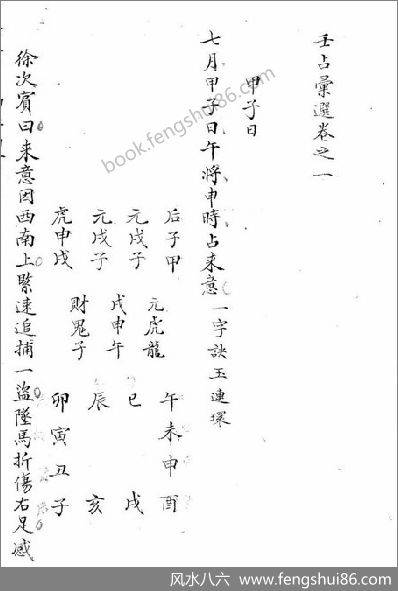 壬占彙選卷之一
甲子日
七月甲子日午將申時占来意一字訣玉連環
后子甲
元戌子
元戌子
虎申戌
元虎龍
戌申午
財鬼子
午未申酉
巳 戌
辰 亥
卯寅丑子
徐次賓曰来意因西南上緊速追捕一盜墜馬折傷右足感
book.fengshui86.com
风水八六 www.fengshui86.com